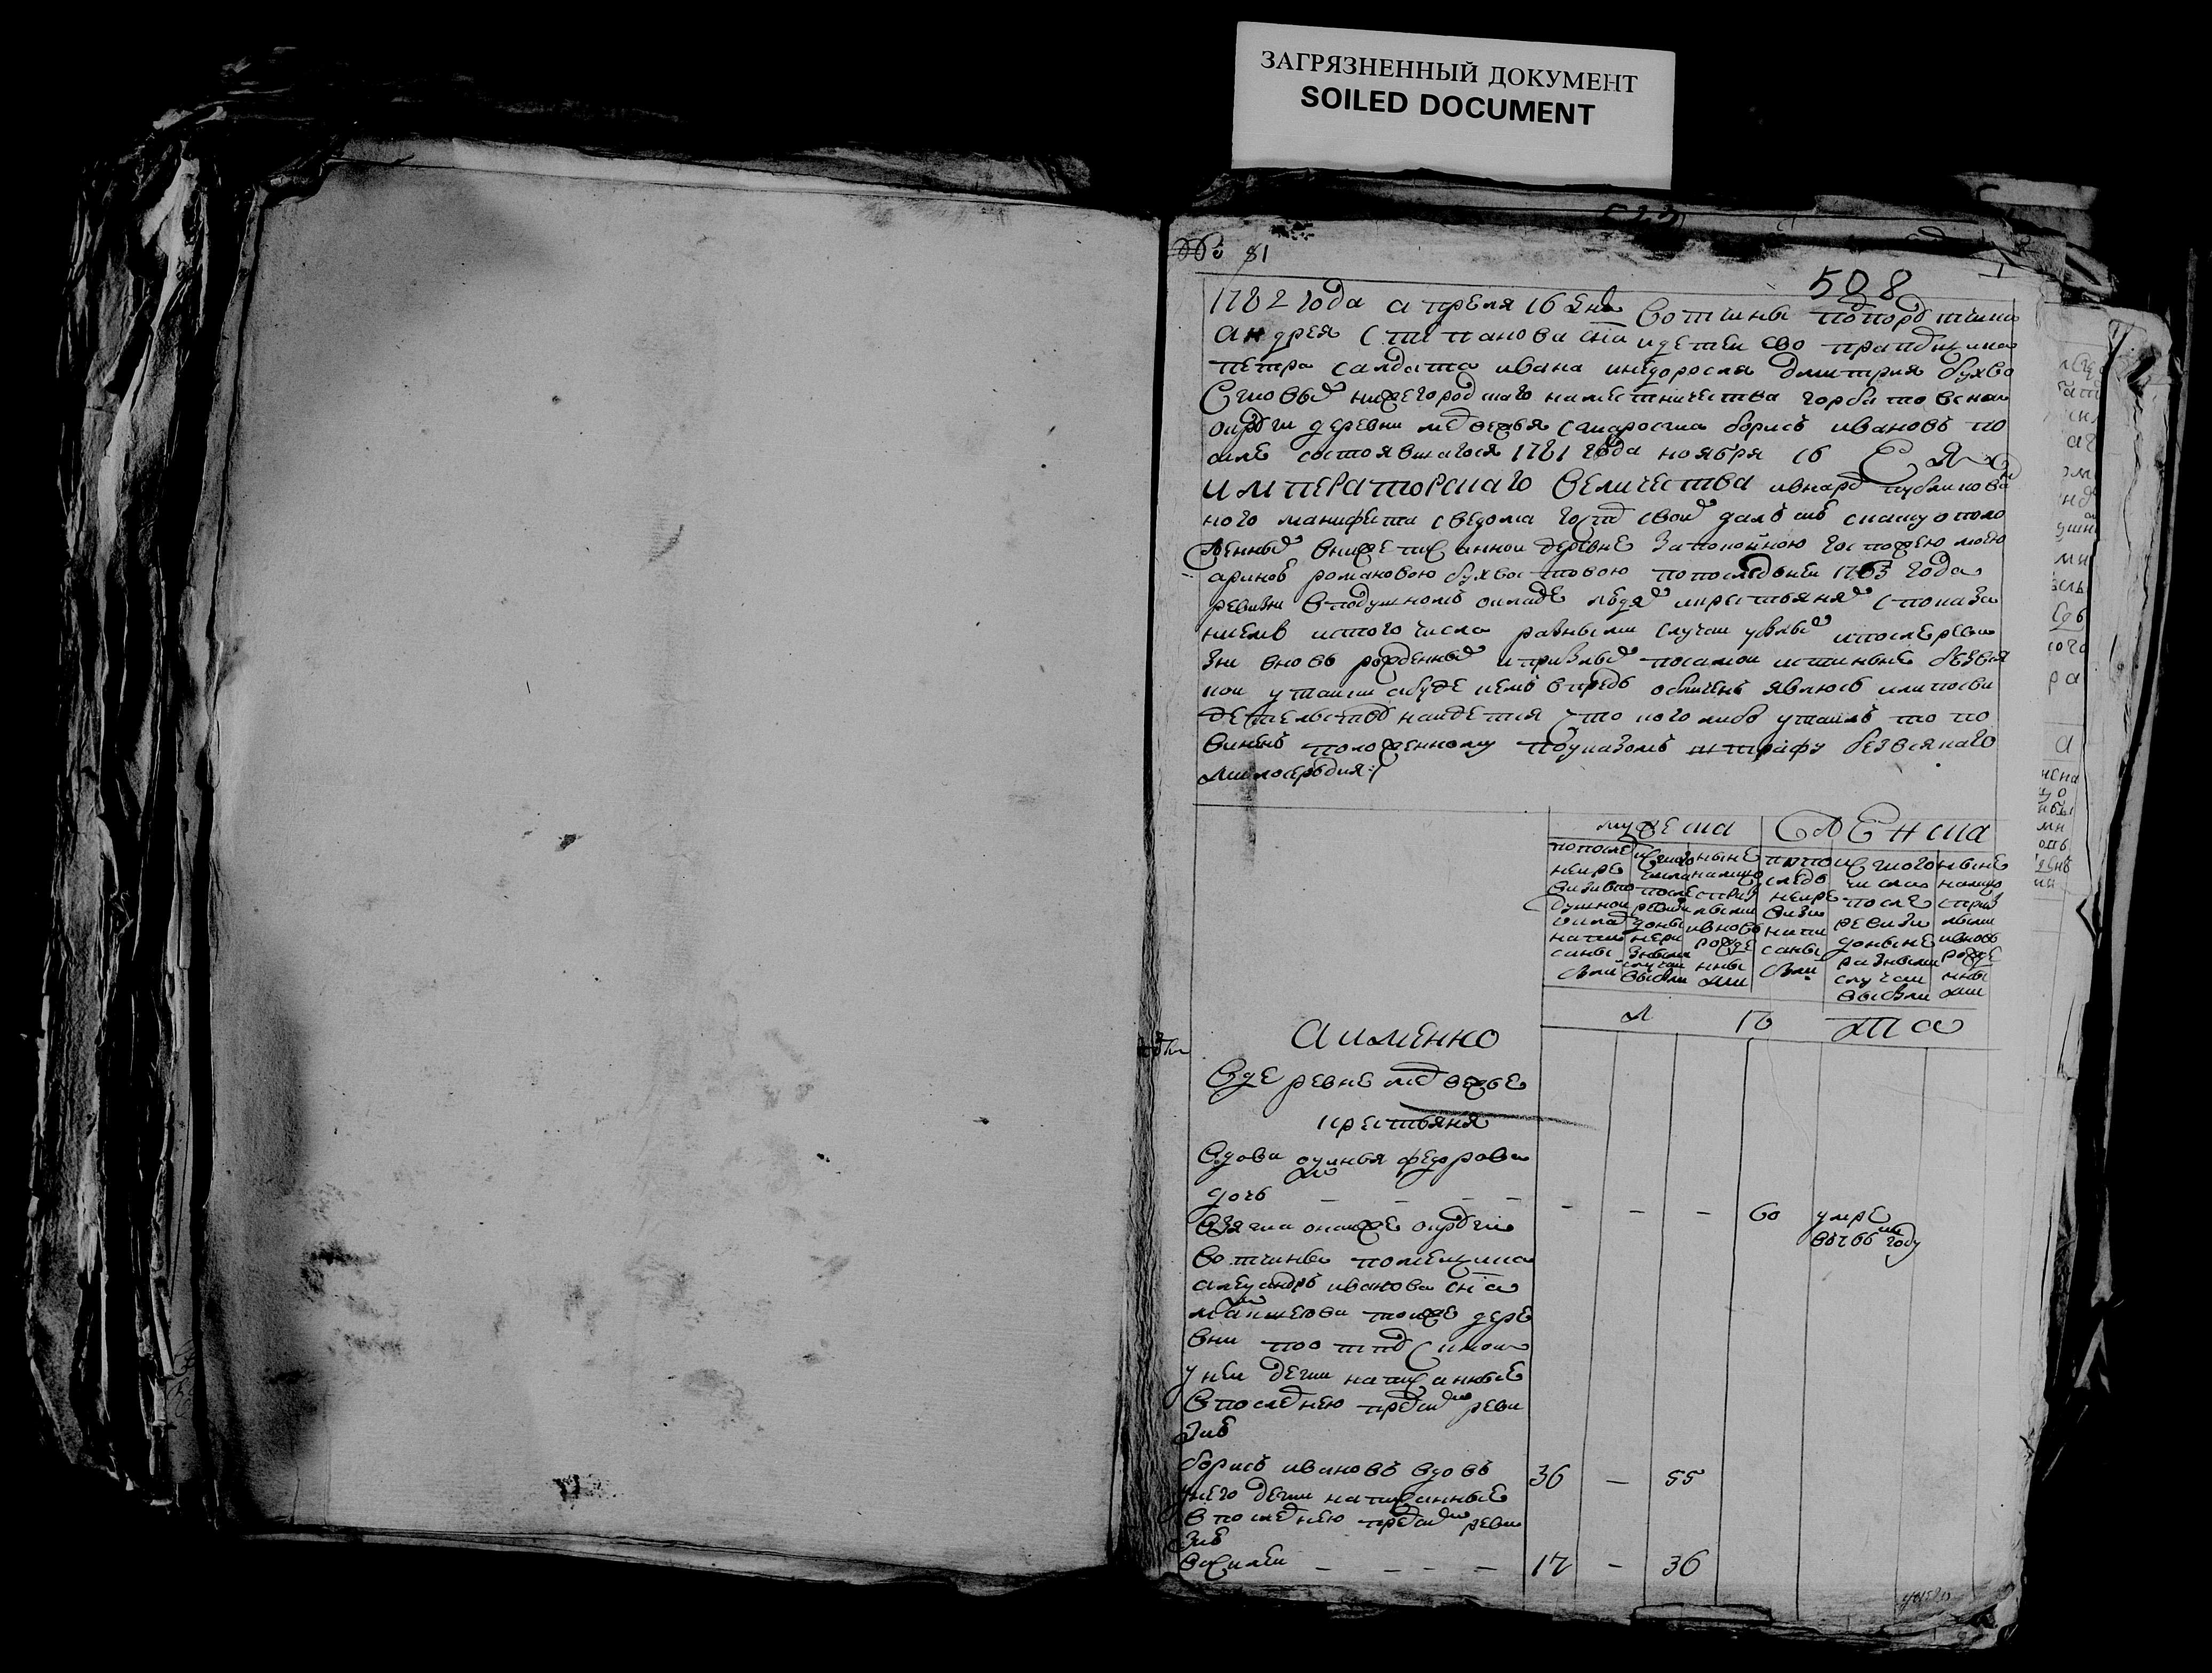 ЗАГРЯЗНЕННЫЙ ДОКУМЕНТ
SOILED DOCUMENT
81
508
1782 года апреля 16 дня вотчины
андрея степанова сна идетеи ево прапорщика
петра салдата ивана инедоросля дмитрия бухво
стовых нижегородцкаго наместничества горбатовскои
округи деревни медвежья староста борисъ ивановъ по
силе состоявшагося 1781 года ноября 16 Ея
императорскаго величества ивнарод публикова
ного манифеста сведома господ своих далъ сию скаску ополо
женных внижеписаннои деревне запокоиною госпожею моею
ариною романовою бухвостовою попоследнеи 1763 года
ревизи вподушномъ окладе людях икрестьянях спокaза
ниемъ истого числа разными случаи убылых ипослеревизи
вновь рожденных иприбылых посамои истинные безвся
кои утаики абуде чемъ впредь обличенъ явлюсь илипосви
детельству наидетца что кого либо утаилъ то по
виненъ положенному поуказомъ штрафу безвсякаго
милосердия
мужеска
женска
попоследнеи ревизи вподушнои окладъ написаны были
исътого числа после ревизи доныне разными случаи выбыли
ныне налицо сприбылыми ивновь рожденными
попоследнеи ревизи написаны были
исътого числа после ревизи доныне разными случаи выбыли
ныне налицо сприбылыми ивновь рожденными
лета
аименно
вдеревне медвежье
крестьяня
вдова федорова
дочь – – – – – – – 60 умре
в 1766 м году
взята онаиже округи
вотчины помещика
александръ иванова сна
тоиже дере
вни поотпускнои
унеи дети написанные
впоследнею пред сим реви
зию
борисъ ивановъ вдовъ 36 – 55
унего дети написанные
впоследнею пред сим реви
зию
василеи – – – – 17 – 36